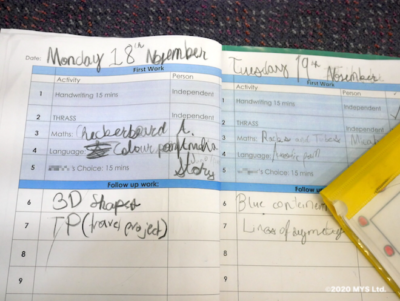 Date: Monday 18th November
First Work
Activity Person
1 Handwriting 15 mins Independent
2 THRASS Independent
3 Maths: Checkerboard
4 Language: Colour
5 Choice: 15 mins Story
Follow up work:
6 3D shapes
7 TP (travel project)
8
9
Tuesday 19th November
First Work
Activity Person
1 Handwriting 15 mins Independent
2 THRASS Independent
3 Maths:
4 Language:
5 Choice: 15 mins
Follow up work:
6 Blue
7 Lines of symmetry
8
9
©2020 MYS Ltd.